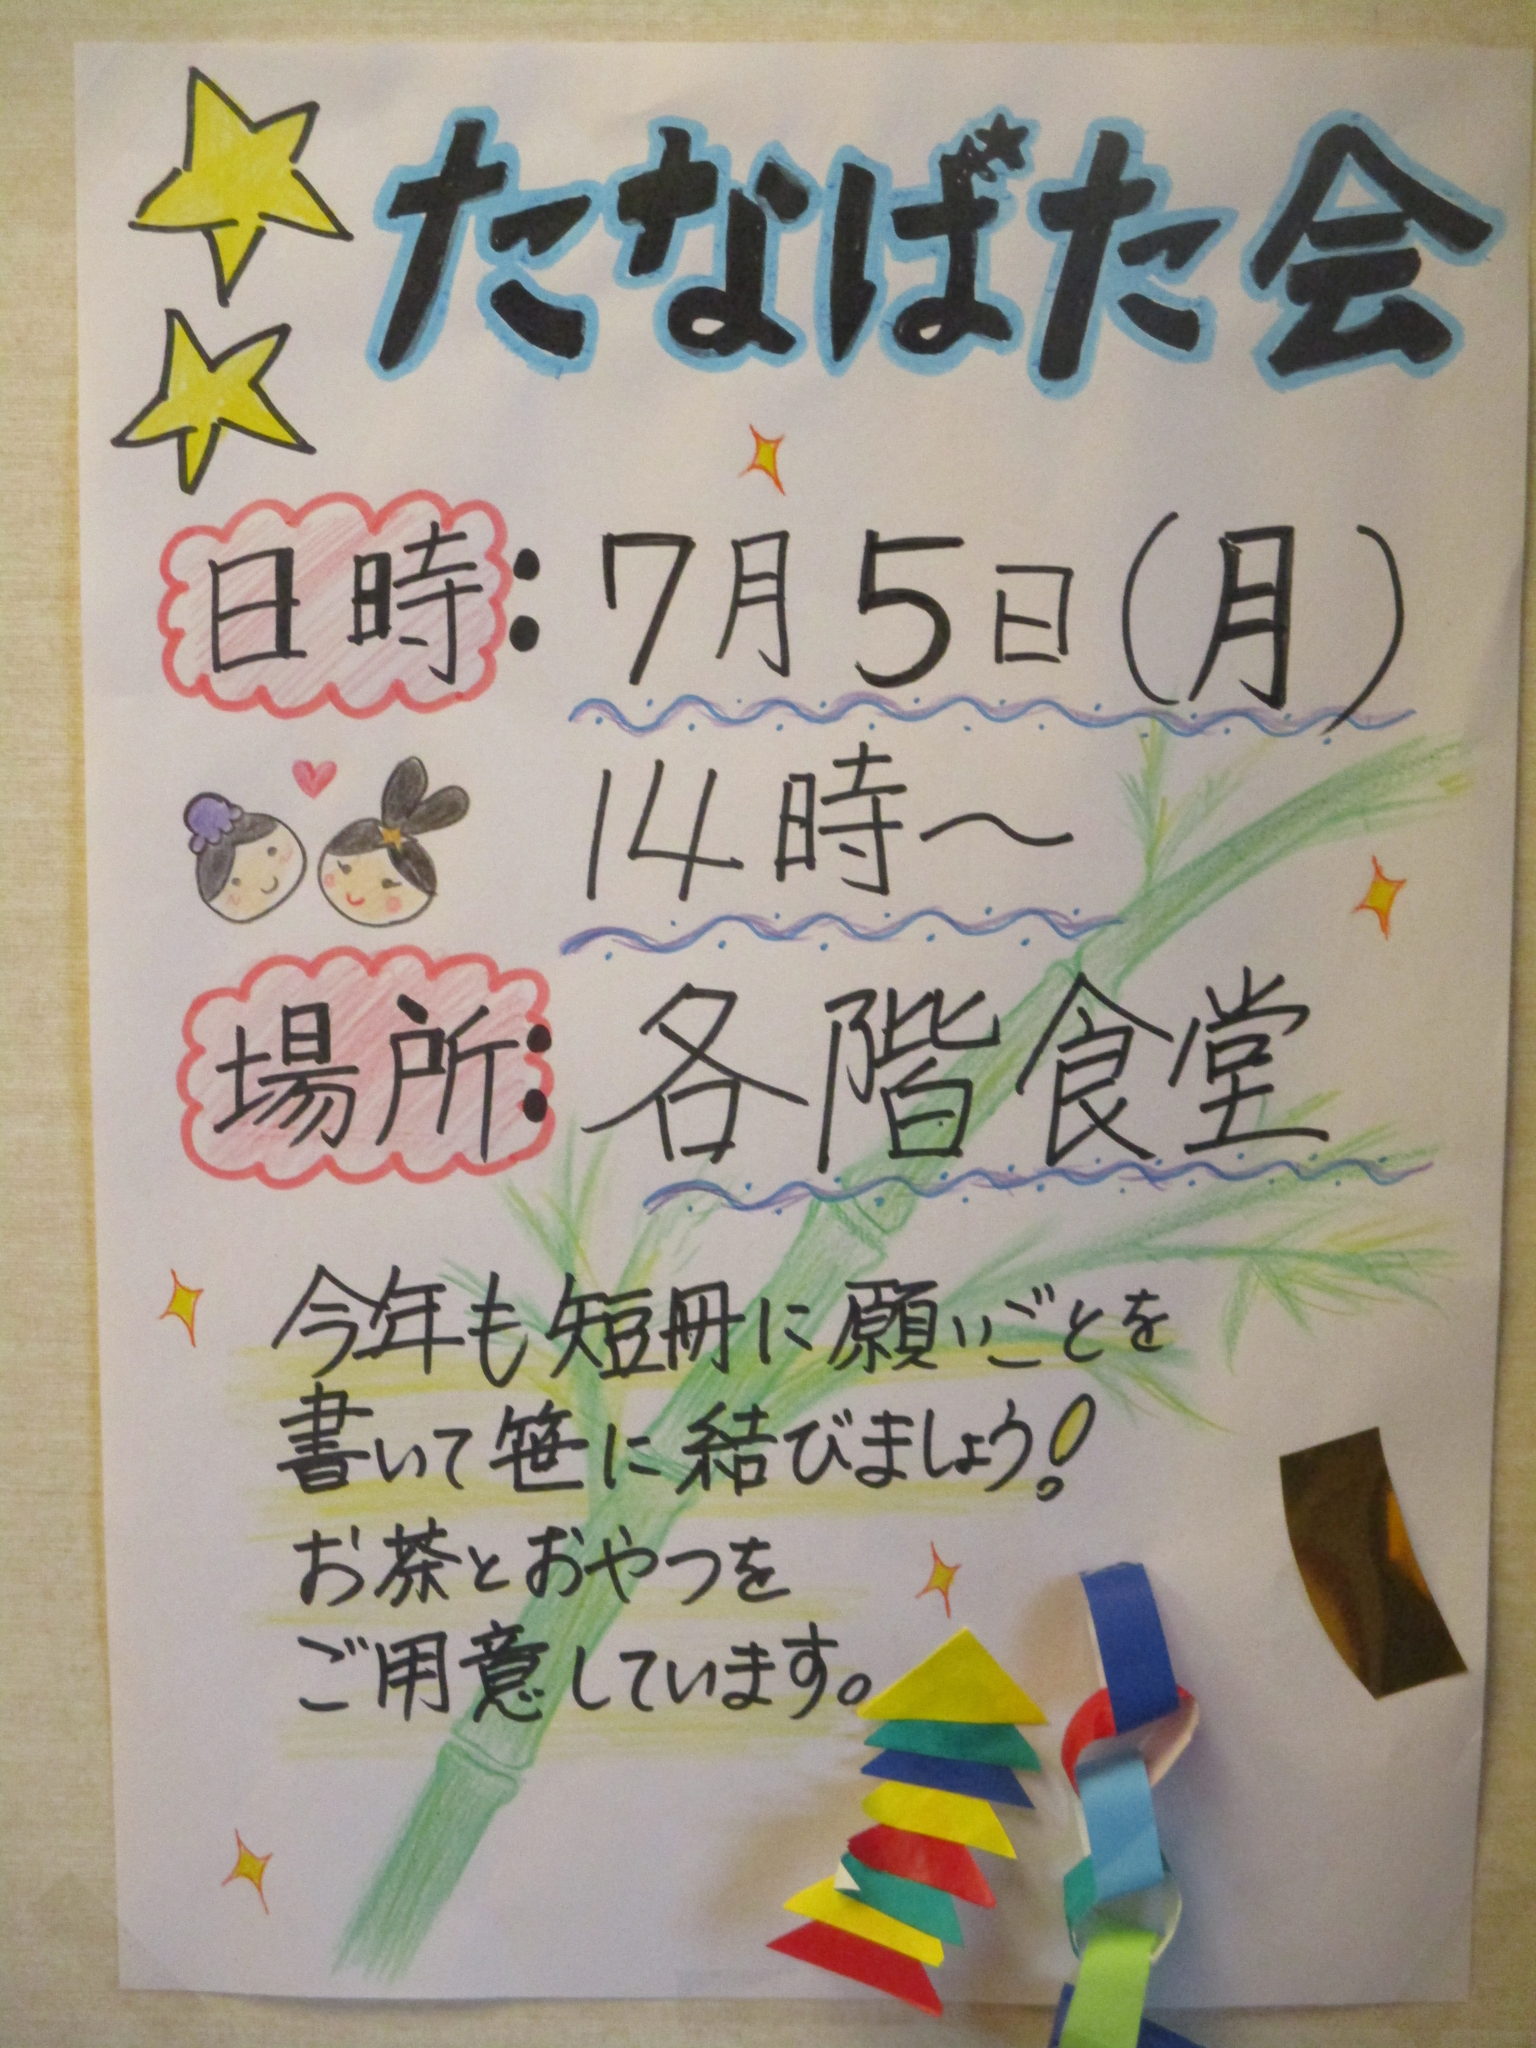 たなばた会
日時:7月5日(月)
14時〜
場所:各階食堂
今年も短冊に願いごとを
書いて笹に結びましょう!
お茶とおやつを
ご用意しています。